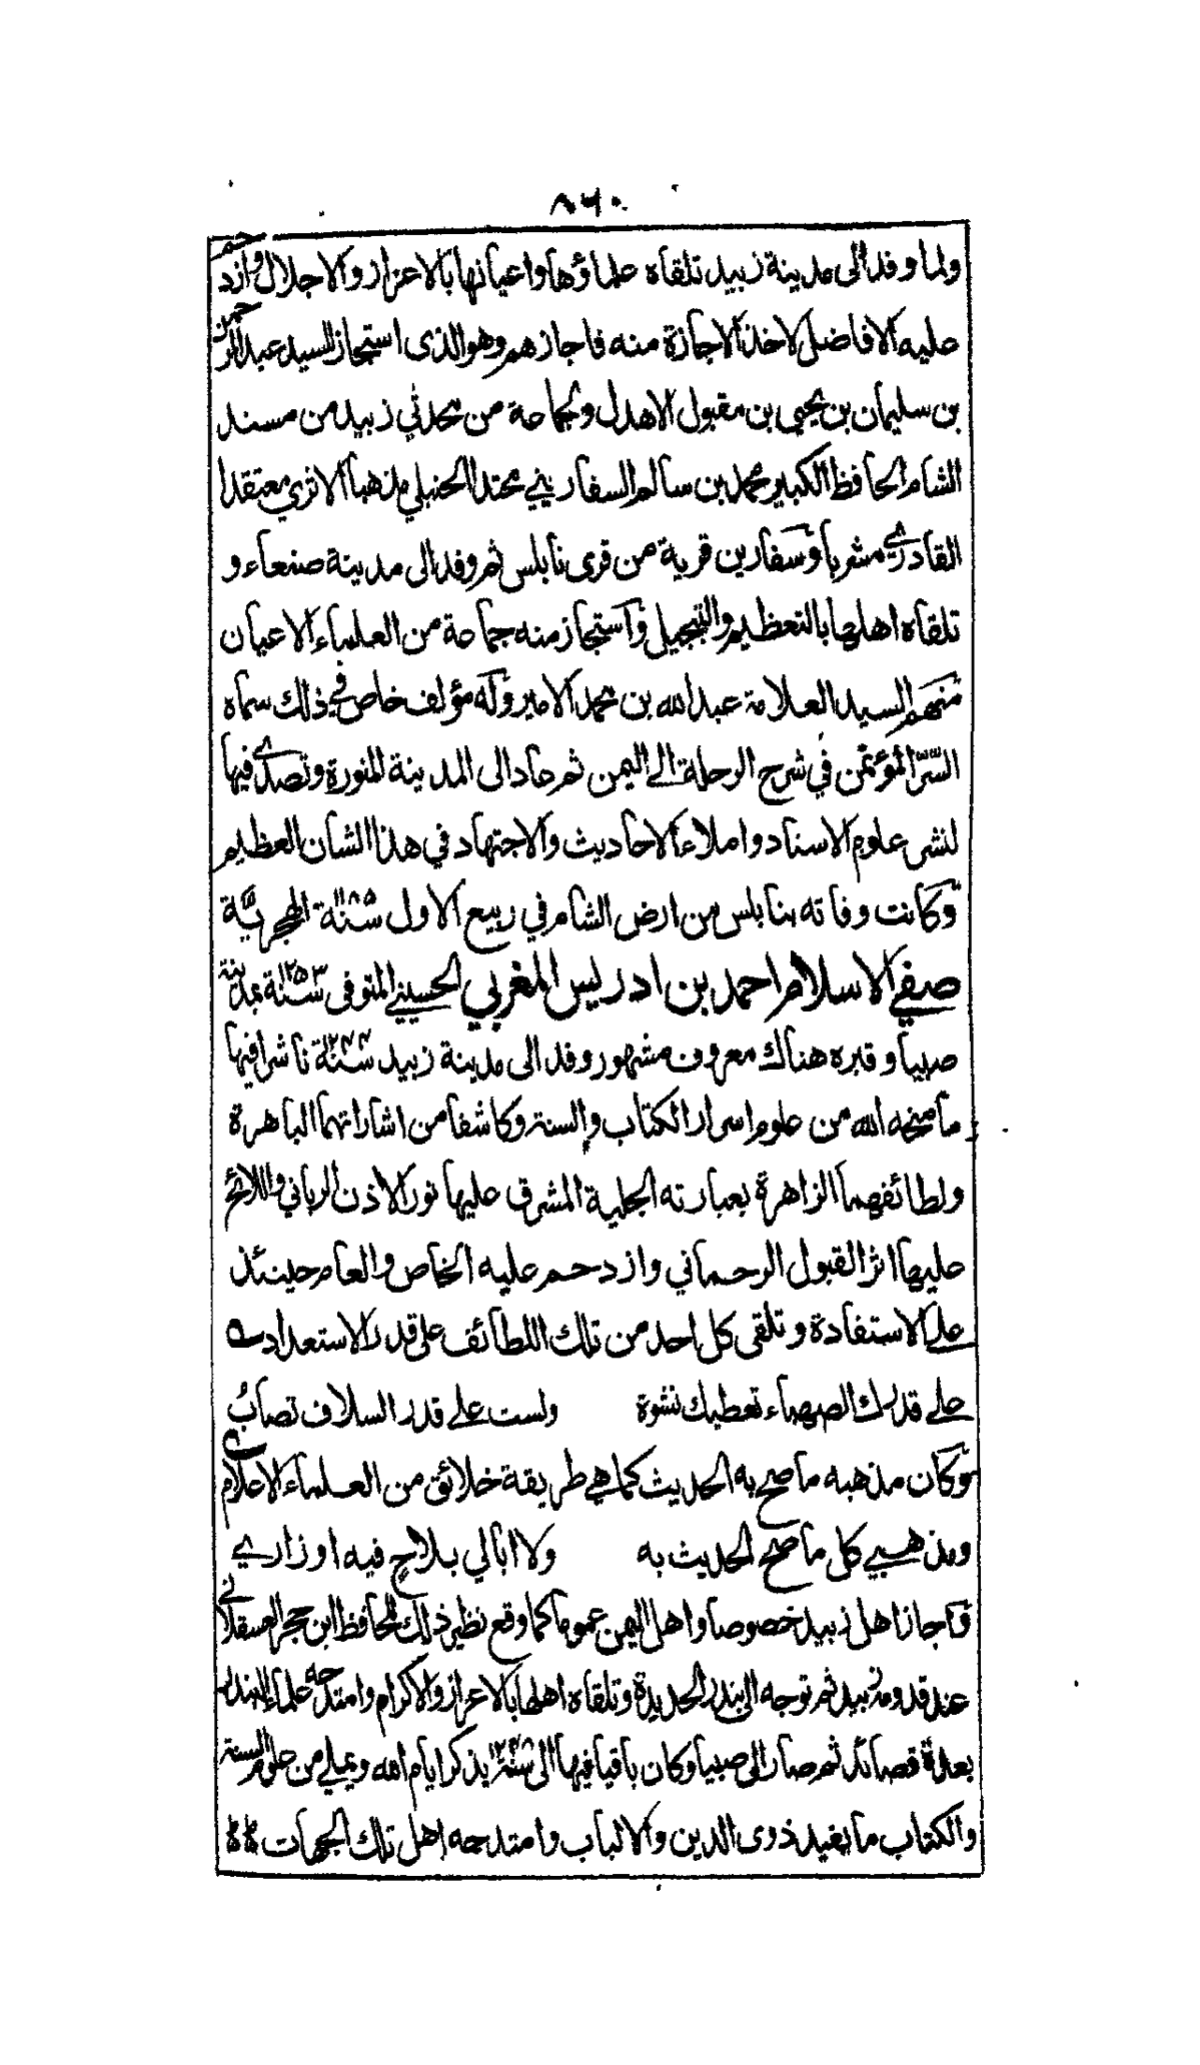 ٨٦٠
ولما وفد الى مدينة زبيد تلقاه علماؤها واعيانها بالاعزاز والاجلال وازدحم
عليه الافاضل لاخذ الاجازة منه فاجازهم وهو الذى استجاز للسيد عبد الرحمن
بن سليمان بن يحيى بن مقبول الاهدل ولجماعة من محدثي زبيد من مسند
الشام الحافظ الكبير محمد بن سالم السفاريني محتدا الحنبلي مذهبا الاثري معتقدا
القادري مشربا وسفارين قرية من قرى نابلس ثم وفد الى مدينة صنعاء و
تلقاه اهلها بالتعظيم والتبجيل واستجاز منه جماعة من العلماء الاعيان
منهم السيد العلامة عبد الله بن محمد الامير وله مؤلف خاص في ذلك سماه
السّرّ المؤتمن في شرح الرحلة الى اليمن ثم عاد الى المدينة المنورة وتصدى فيها
لنشر علوم الاسناد واملاء الاحاديث والاجتهاد في هذا الشان العظيم
وكانت وفاته بنابلس من ارض الشام في ربيع الاول سنة ١١٨٨ الهجريّة
صفي الاسلام احمد بن ادريس المغربي الحسيني المتوفى سنة ١٢٥٣ بمدينة
صبيا وقبره هناك معروف مشهور وفد الى مدينة زبيد سنة ١٢٤٤ ناشرا فيها
ما منحه الله من علوم اسرار الكتاب والسنة وكاشفا من اشاراتهما الباهرة
ولطائفهما الزاهرة بعبارته الجلية المشرق عليها نور الاذن الرباني واللائح
عليها اثر القبول الرحماني وازدحم عليه الخاص والعام حينئذ
على الاستفادة وتلقى كل احد من تلك اللطائف على قدر الاستعداد ے
على قدرك الصهباء تعطيك نشوة ولست على قدر السلاف تصابُ
وكان مذهبه ما صح به الحديث كما هي طريقة خلائق من العلماء الاعلام ے
ومذهبي كل ما صح الحديث به ولا ابالي بلاحٍ فيه او زاري
فاجاز اهل زبيد خصوصا واهل اليمن عموما كما وقع نظير ذلك للحافظ ابن حجر العسقلاني
عند قدومه زبيد ثم توجه الى بندر الحديدة وتلقاه اهلها بالاعزاز والاكرام وامتدحه علماء البندر
بعدة قصائد ثم صار الى صبيا وكان باقيا فيها الى سنة ١٢٤٥ يذكر ايام الله ويملي من علوم السنة
والكتاب ما يفيد ذوى الدين والالباب وامتدحه اهل تلك الجهات